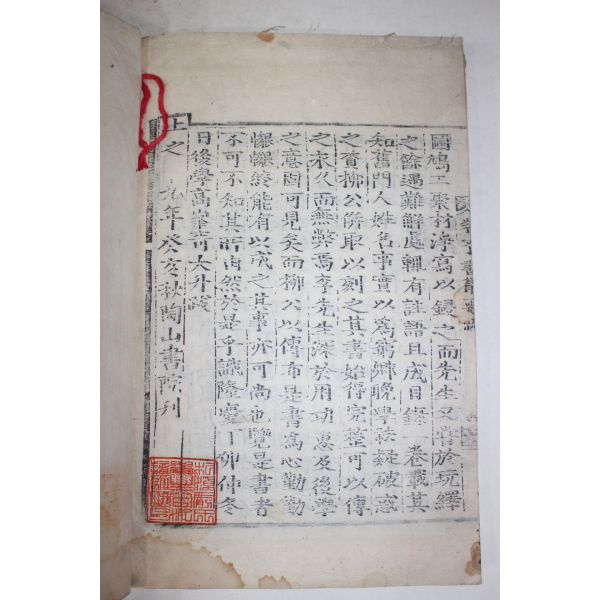 圖鳩工聚材淨寫以鋟之而先生又嘗於玩繹
之餘遇難解處輒有註語且成目錄 卷載其
知舊門人姓名事實以爲窮鄉晚學祛疑破惑
之資柳公倂取以刻之其書始得完整可以傳
之永久而無弊焉李先生深於用功惠及後學
之意固可見矣而柳公以傳布是書爲心勤勤
懇懇終能有以成之其事亦可尚也覽是書者
不可不知其所由然於是乎識隆慶丁卯仲冬
日後學高峯奇大升跋
上之 九年癸亥秋陶山書院刊